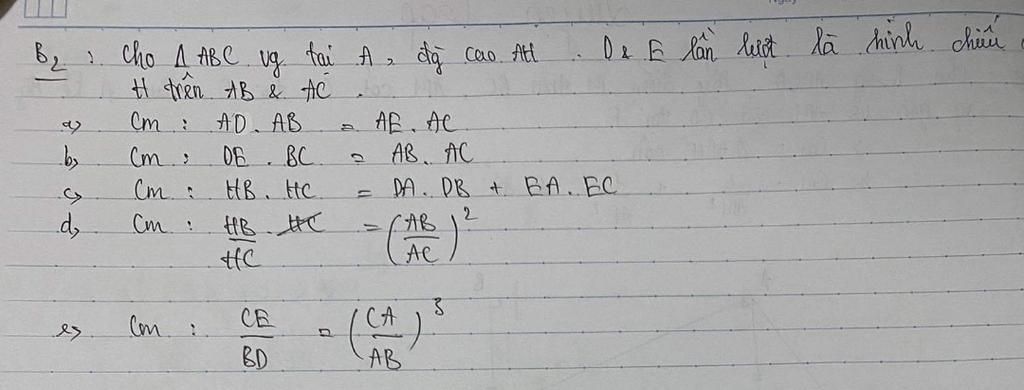 B2 : Cho Δ ABC vg tại A, đg cao AH. D & E lần lượt là hình chiếu
H trên AB & AC.
a) Cm : AD. AB = AE. AC
b) Cm : DE. BC = AB. AC
c) Cm : HB. HC = DA. DB + EA. EC
d) Cm : HB/HC = (AB/AC)²
e) Cm : CE/BD = (CA/AB)³